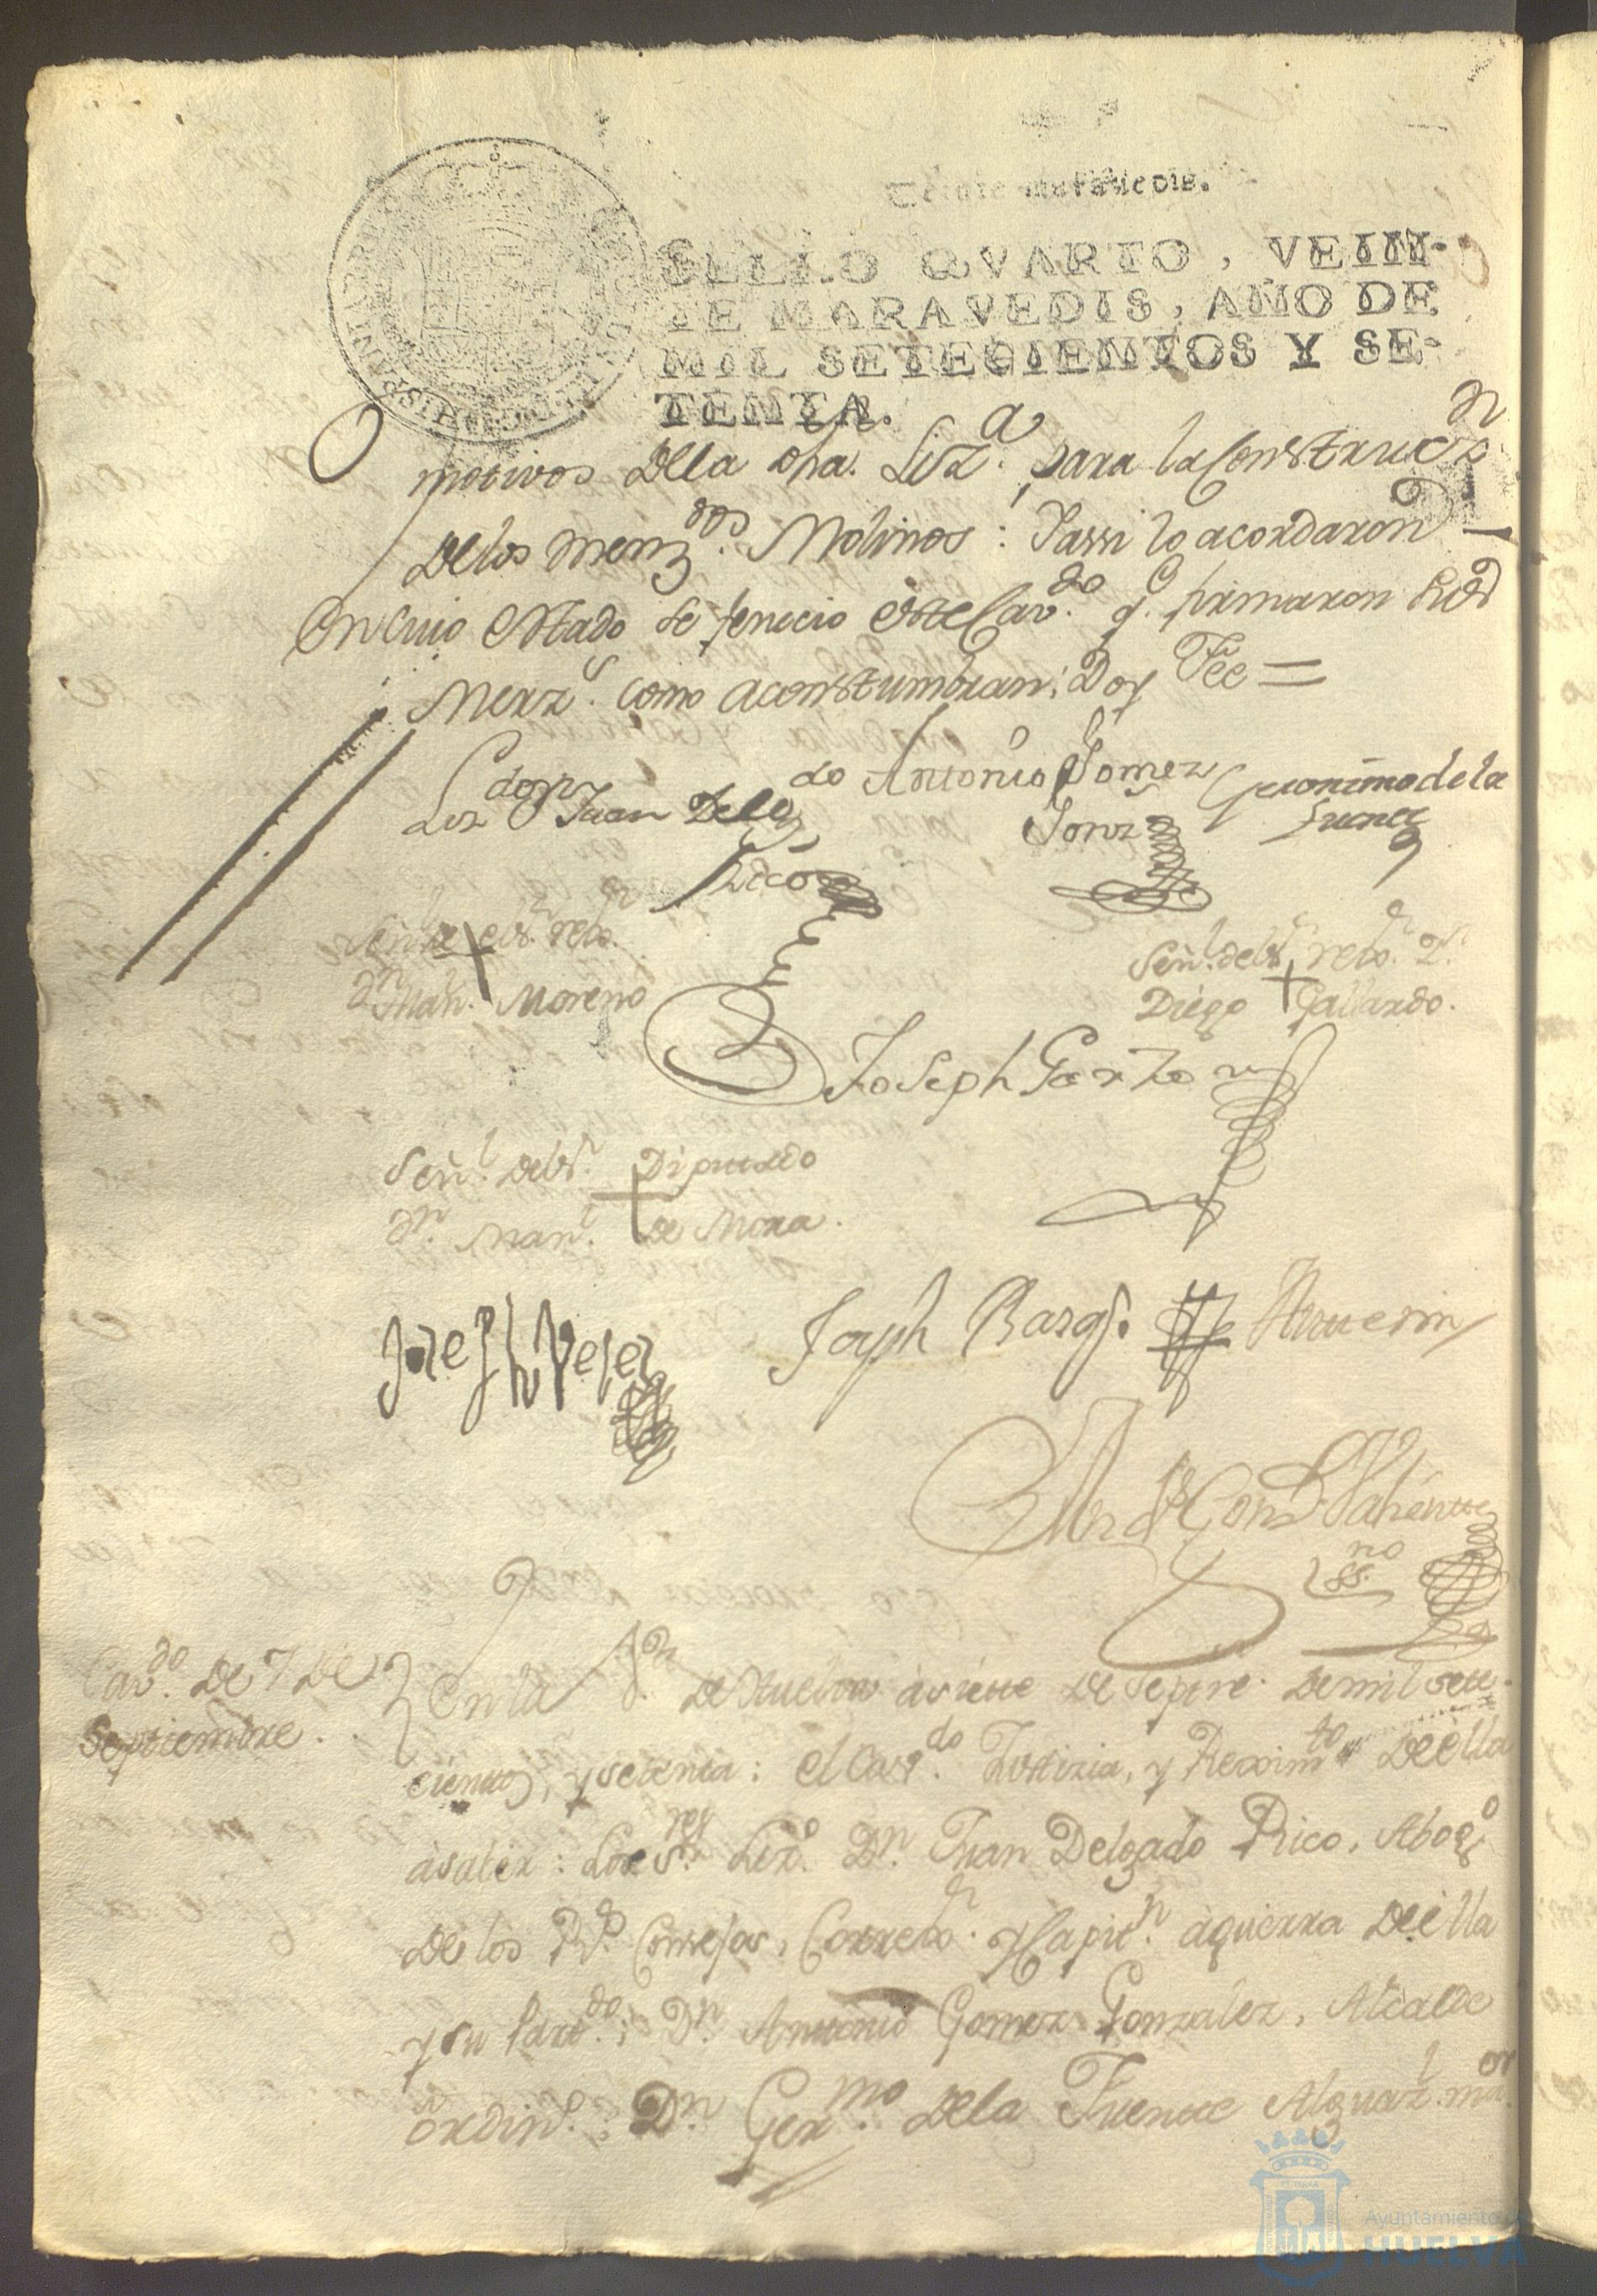 Veinte maravedis.
SELLO QVARTO, VEIN-
TE MARAVEDIS, AÑO DE
MIL SETECIENTOS Y SE-
TENTA.
motivos Dela dha. Liz.ª para la Construcc.on
Delos menz.dos Molinos: Yassi lo acordaron
En cuio estado se fenecio este Cav.do q. firmaron sus
Merz.s como acostumbran: Doy Fee =
Liz.do Dn Juan Delgado
Rico
Antonio Gomez
Gonz
Geronimo de la
Fuente
Señ.l de el Sr. rexor.
Dn Man.l Moreno
Señ.l del Sr. rexor. Dn.
Diego Gallardo.
Joseph Garzon
Señ.l del Sr. Diputado
Dn. Man.l de Mora.
Joseph Veles
Joseph
Valiente
ss.no
Cav.do De 7 De
Septiembre.
En la V.a De Huelva à siette de Septre. De mil sete-
cientos, y setenta: el Cav.do Justizia, y Reximto De ella
à saber: Los S.res Liz.do Dn. Juan Delgado Rico, Abog.do
De los R.s Consejos, Correxor. y Capit.n à guerra De ella
y su Part.do; Dn. Antonio Gomez Gonzalez, Alcalde
ordin.o: Dn. Ger.mo Dela Fuente Alguaz.l m.or
Ayuntamiento de
HUELVA